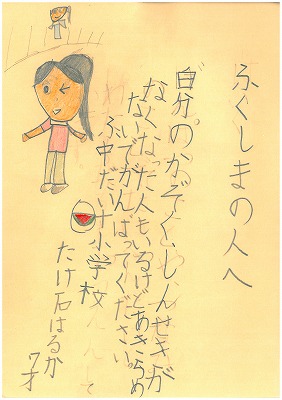 ふくしまの人へ
自分のかぞく、しんせきが
なくなった人もいるけどあきらめ
ないでがんばってください。
ふ中だい十小学校
たけ石はるか
7才